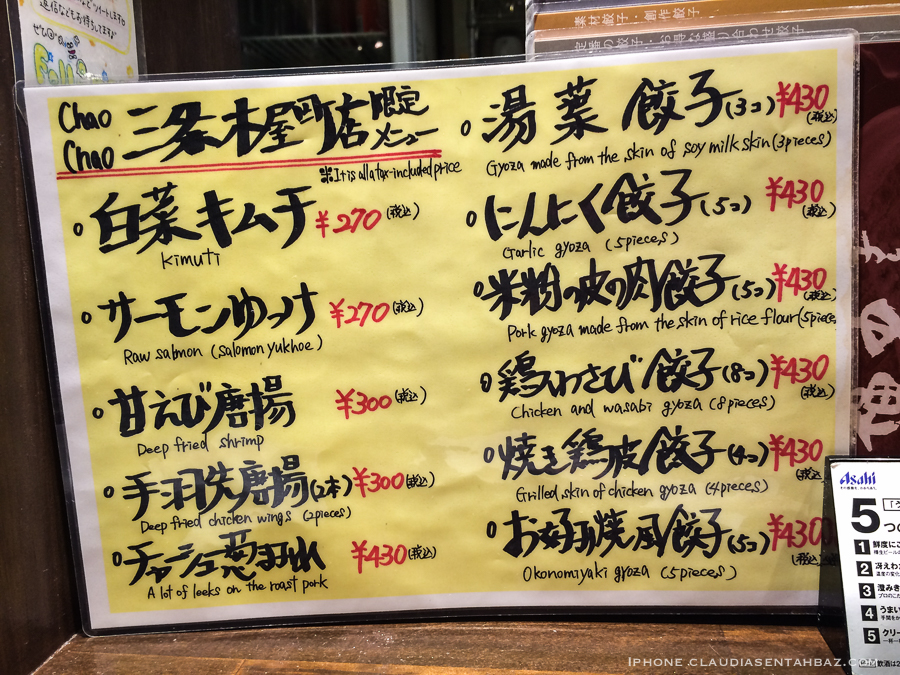 素材餃子・創作餃子
Chao
Chao
三条木屋町店
限定
メニュー
※It is all a tax-included price
白菜キムチ ¥270 (税込)
kimuti
サーモンゆっけ ¥270 (税込)
Raw salmon (salomon yukhoe)
甘えび唐揚 ¥300 (税込)
Deep fried shrimp
手羽先唐揚(2本) ¥300 (税込)
Deep fried chicken wings (2pieces)
チャーシュー葱まみれ ¥430 (税込)
A lot of leeks on the roast pork
湯葉餃子(3コ) ¥430 (税込)
Gyoza made from the skin of soy milk skin (3pieces)
にんにく餃子(5コ) ¥430 (税込)
Garlic gyoza (5pieces)
米粉の皮の肉餃子(5コ) ¥430 (税込)
Pork gyoza made from the skin of rice flour (5piece
鶏わさび餃子(8コ) ¥430 (税込)
Chicken and wasabi gyoza (8pieces)
焼き鶏皮餃子(4コ) ¥430 (税込)
Grilled skin of chicken gyoza (4pieces)
お好み焼風餃子(5コ) ¥430 (税込)
Okonomiyaki gyoza (5pieces)
Asahi
5
つの
1 鮮度にこ
2 冴えわ
3 澄みき
4 うまい
5 クリー
IPHONE.CLAUDIASENTAHBAZ.COM